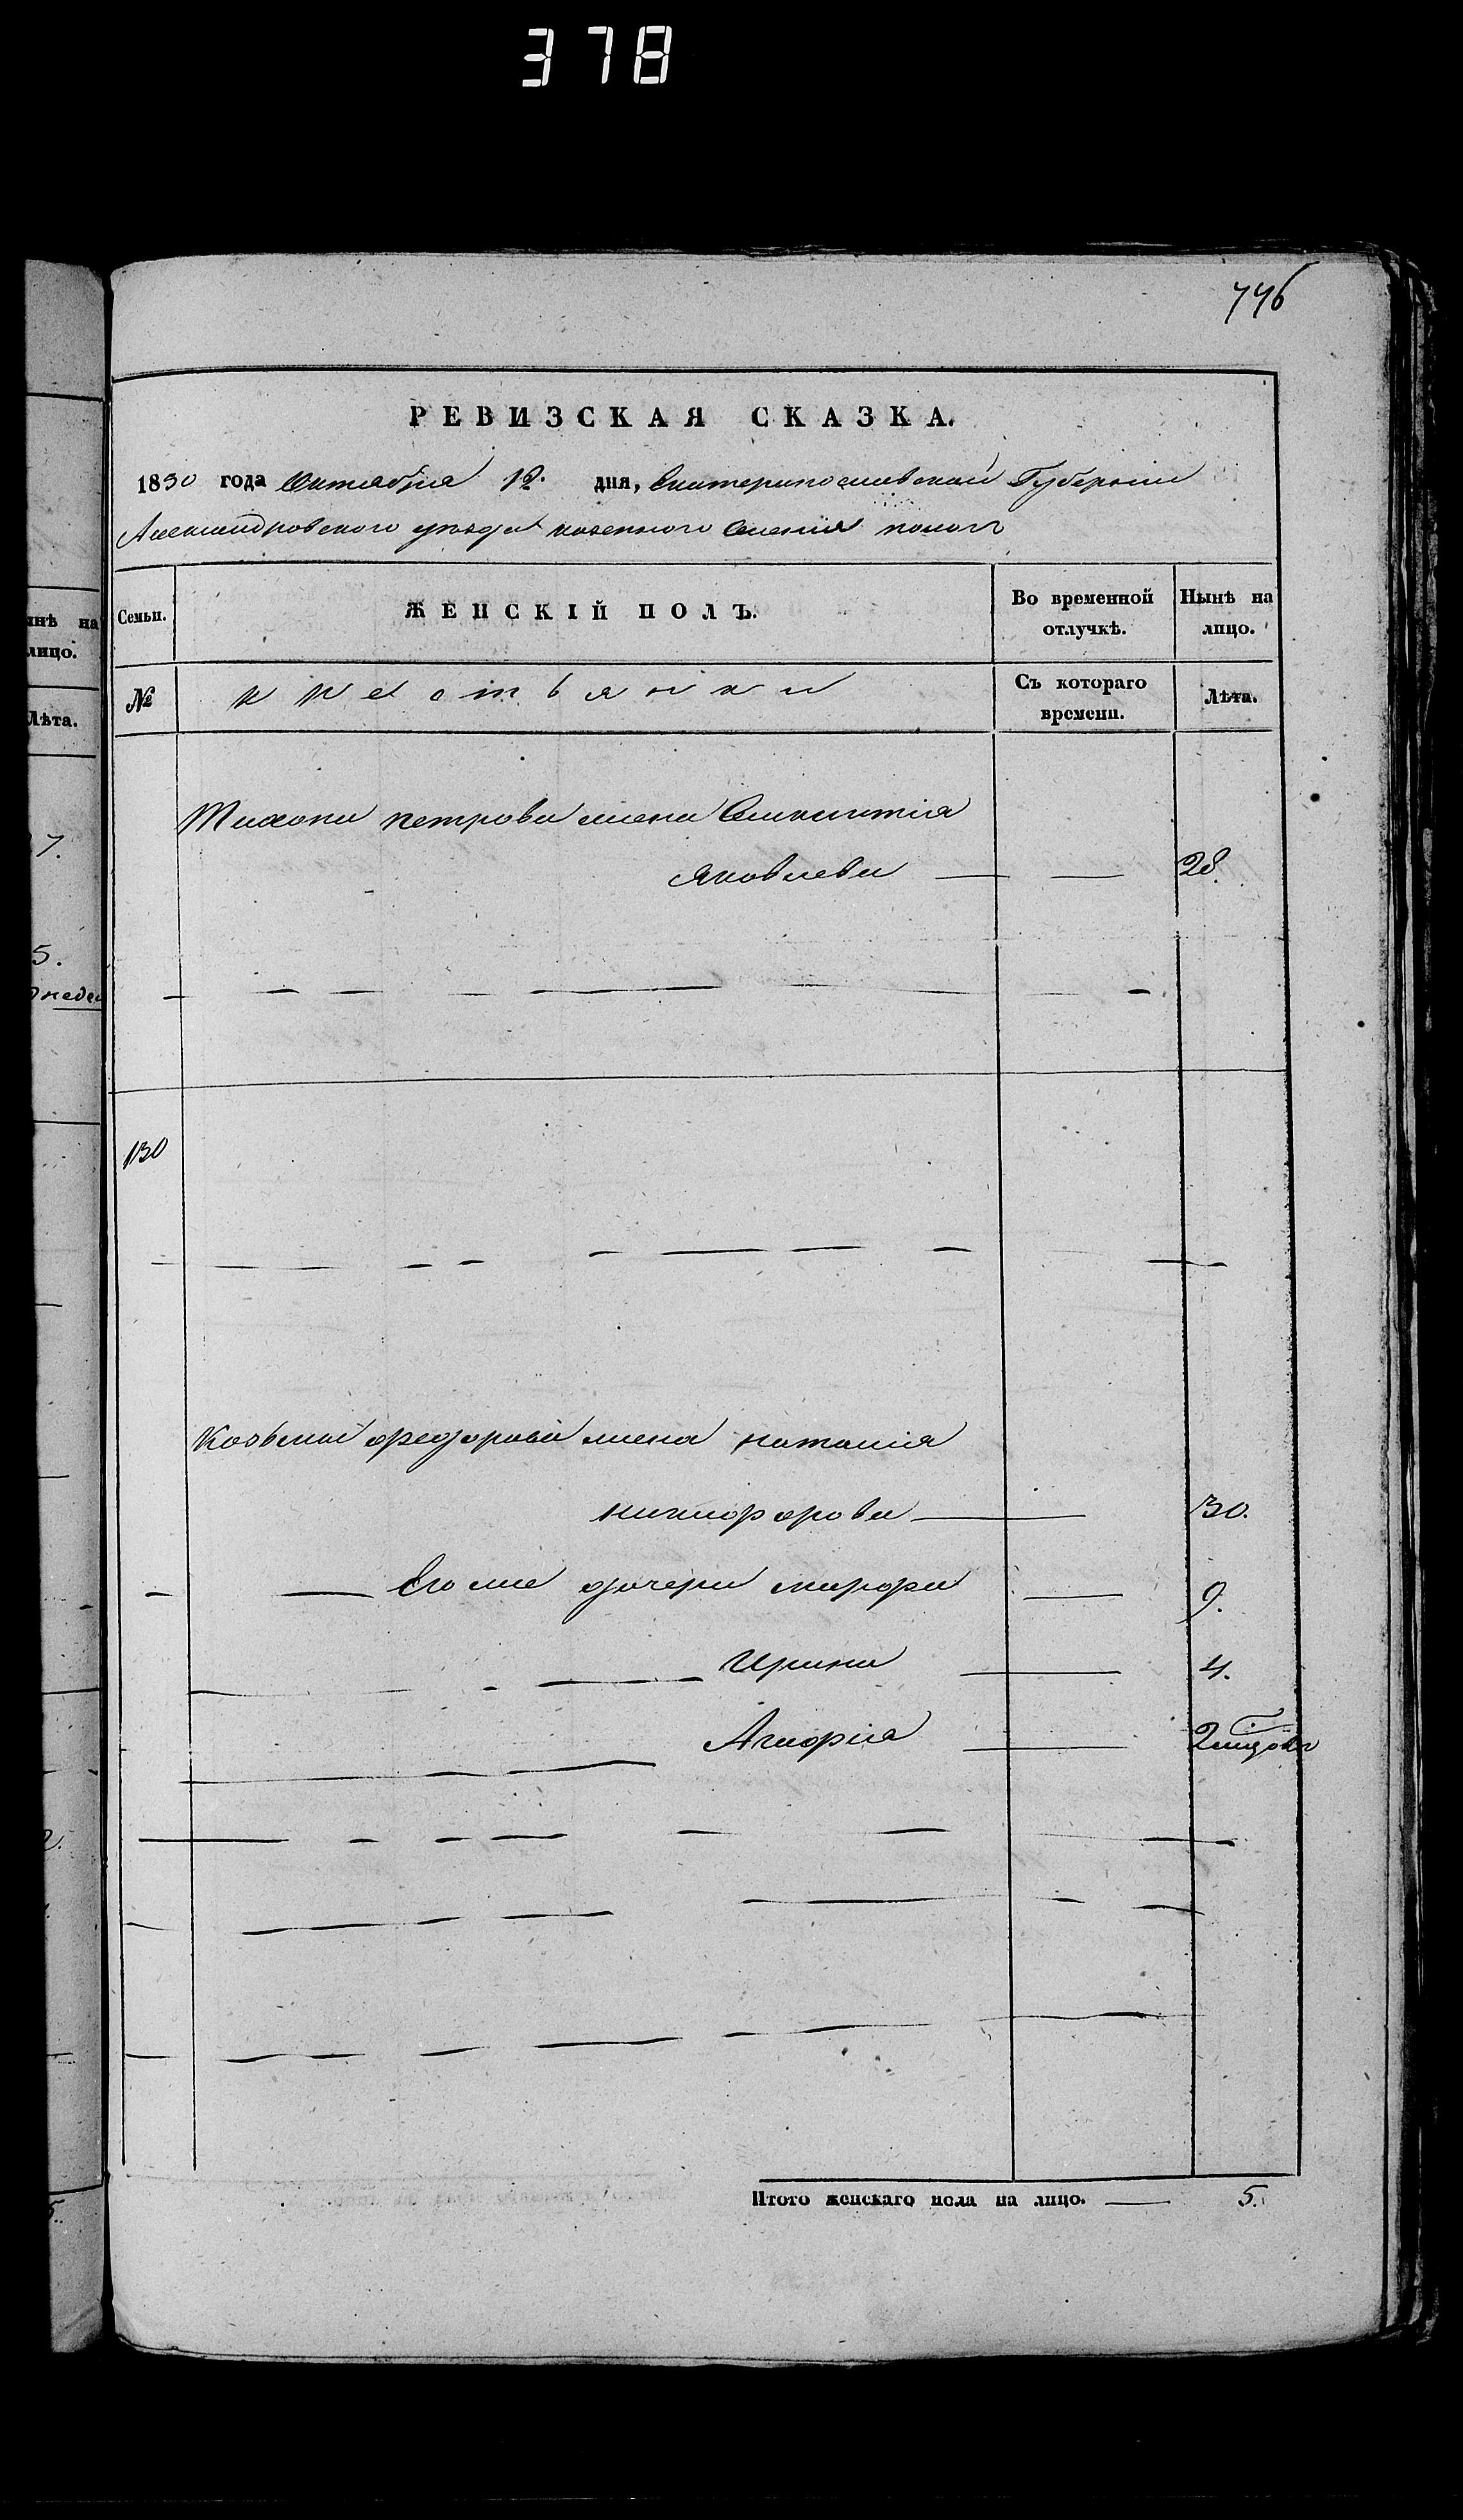 378
776
РЕВИЗСКАЯ СКАЗКА.
1830 года Октября 12. дня, Екатеринославской Губернии
Александровского уезда казенного Селения пологъ
инѣ на
лицо.
Лѣта.
Семьи.
ЖЕНСКІЙ ПОЛЪ.
Во временной
отлучкѣ.
Нынѣ на
лицо.
№
крестьянки
Съ котораго
времени.
Лѣта.
Тихона петрова жена
Яковлева 28.
7.
5.
130
Козьмы федорова жена наталія
никифорова 30.
Его же дочери марфа 9.
Ирина 4.
Агафія
2.
Итого женскаго пола на лицо. 5.
5.